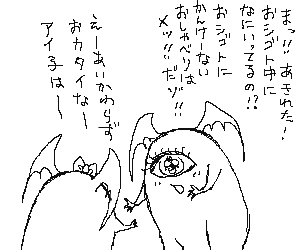 まっ!!あきれた!
おシゴト中に
なにいってるの!?
おシゴトに
かんけーない
おしゃべりは
メッ!!だゾ!!
えーあいかわらず
おカタイなー
アイ子はー